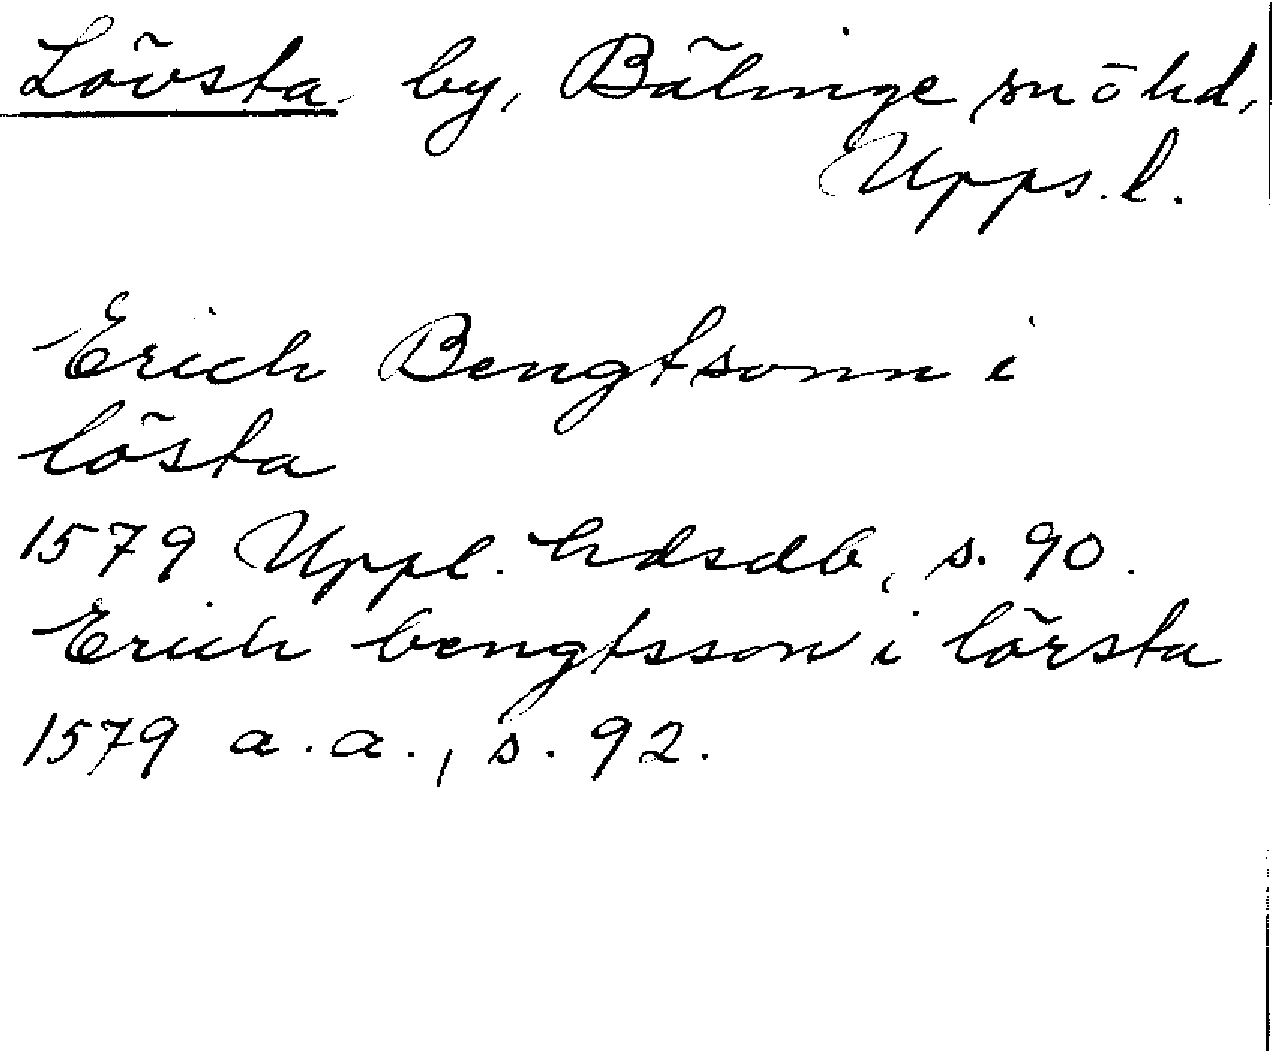 Lövsta by, Bälinge sn ō hd,
Upps. l.
Erich Bengtsonn i
lösta
1579 Uppl. hdsdb, s. 90.
Erich bengtsson i lörsta
1579 a.a., s. 92.